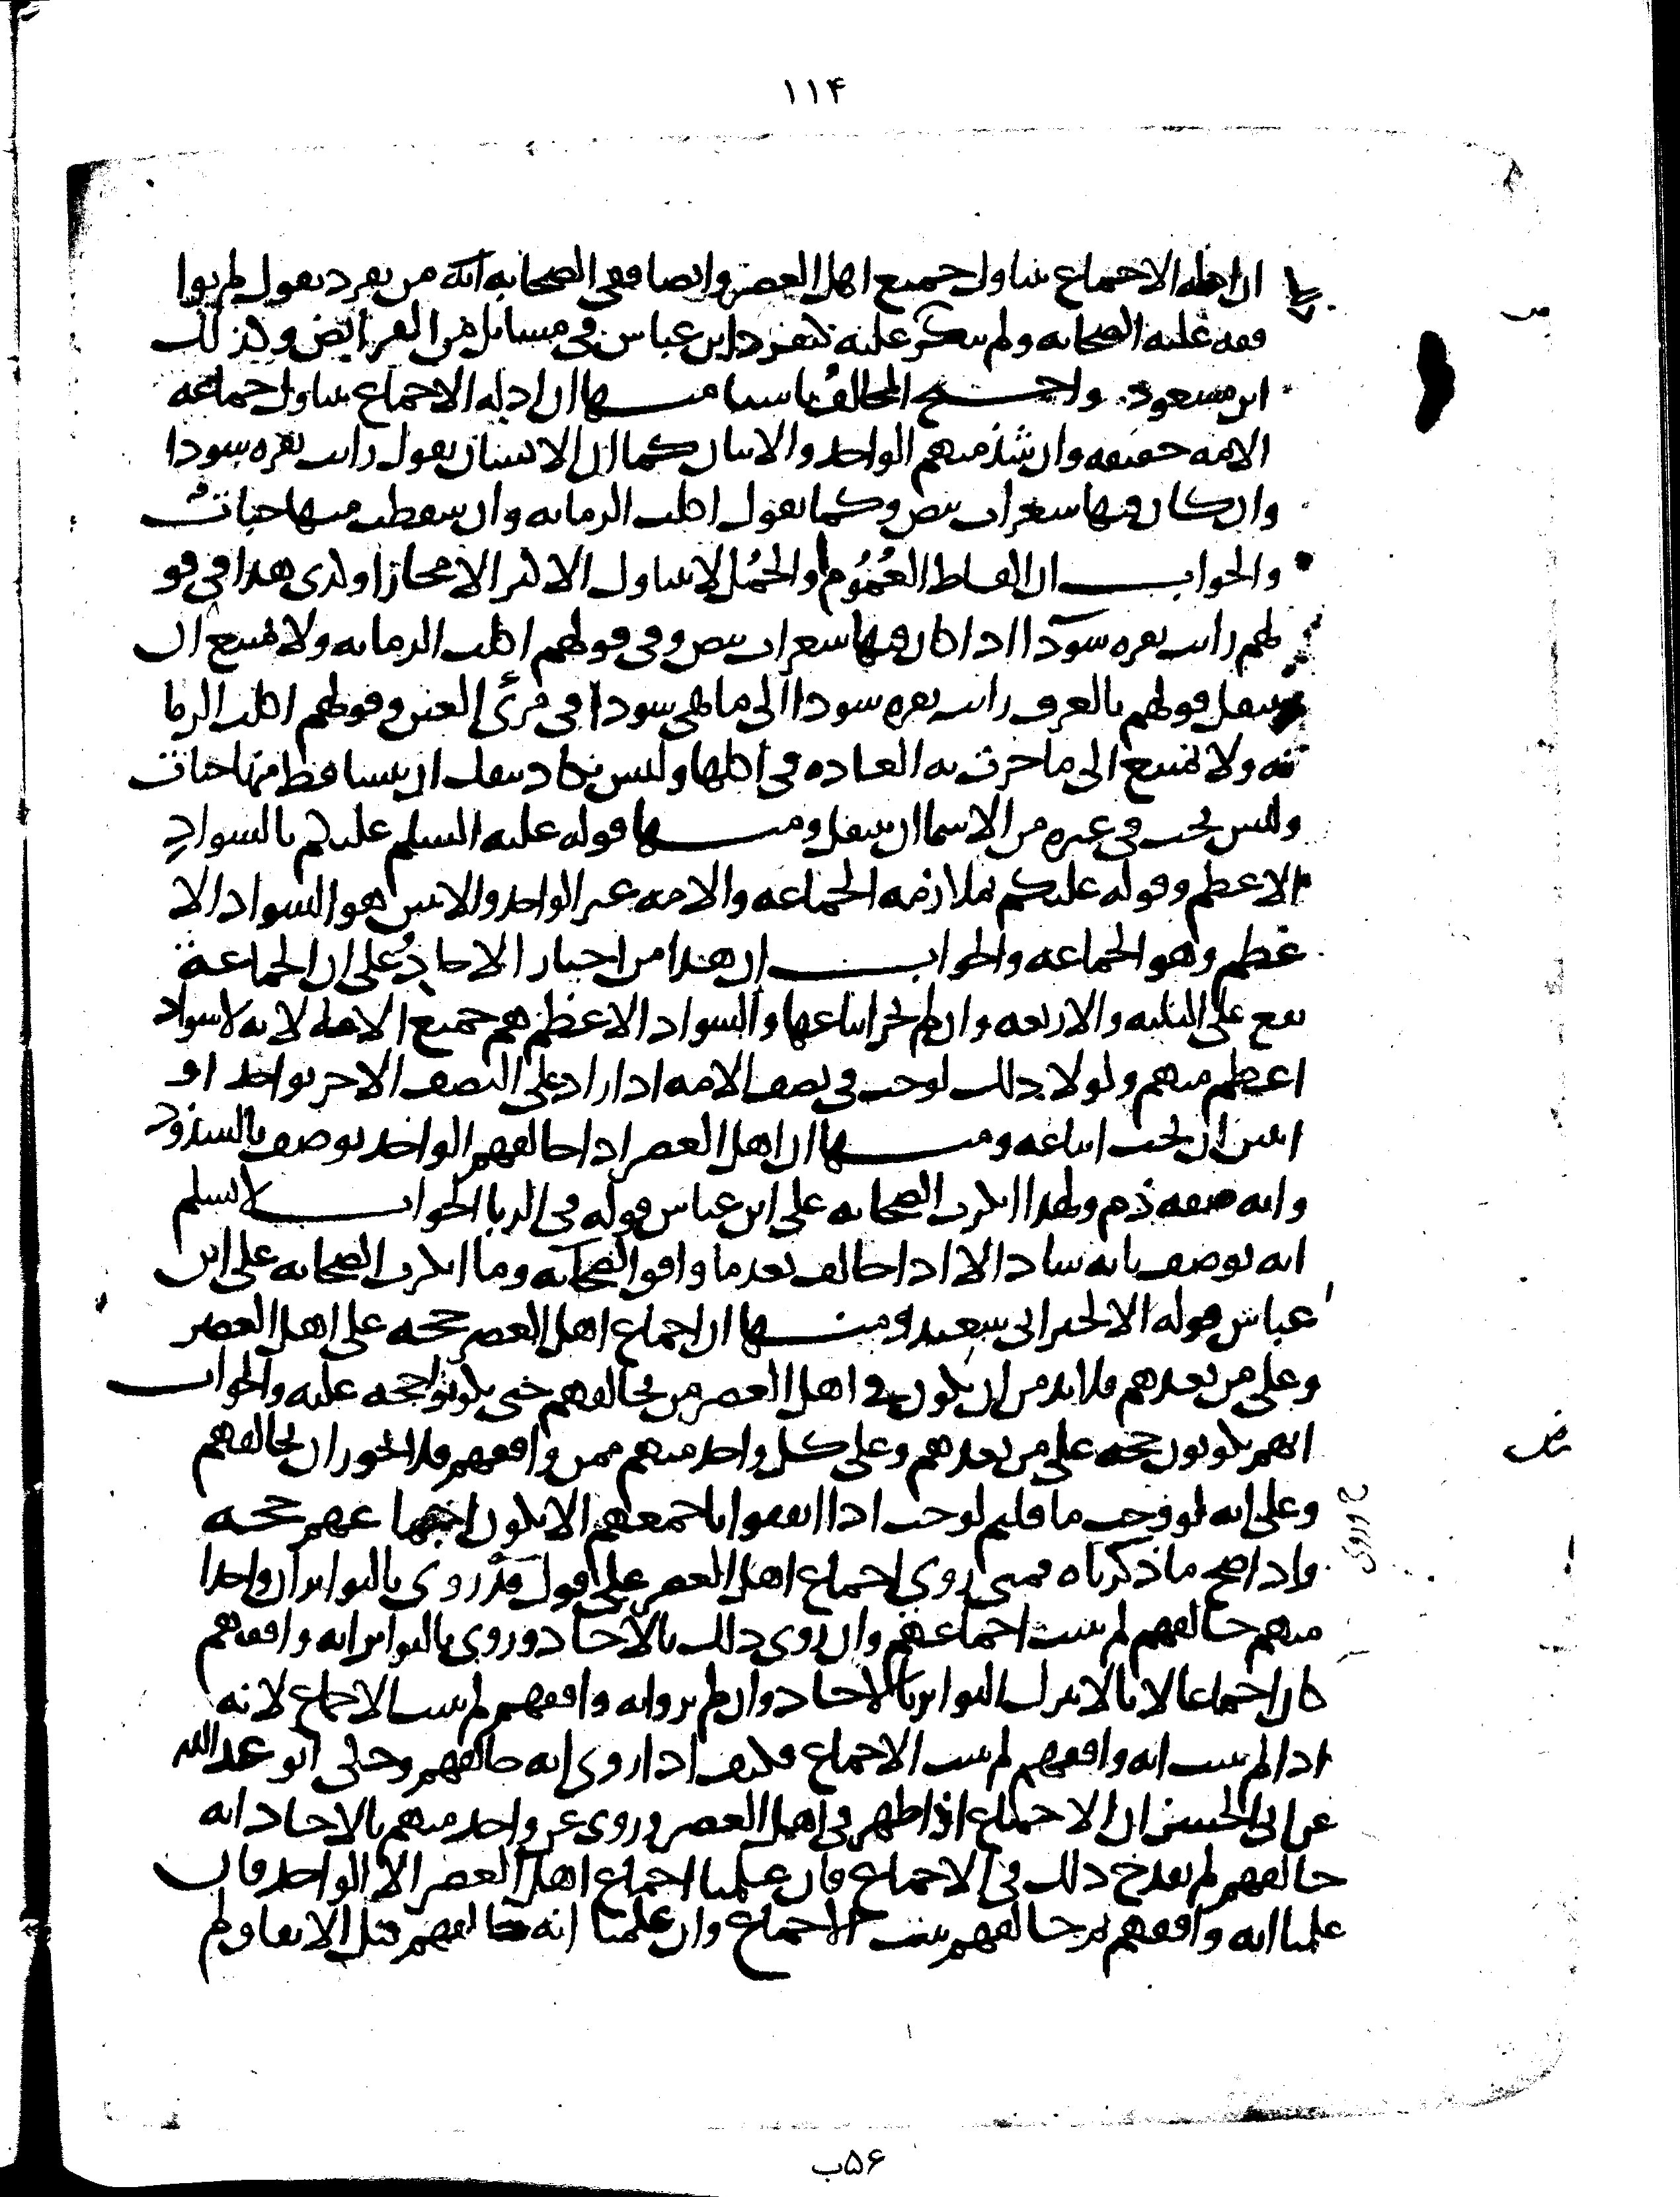 ١١۴
ان ادلة الاجماع تتناول جميع اهل العصر وايضا ففي الصحابه من تفرد بقول لم يوا
فقه عليه الصحابه ولم ينكر عليه كتفرد ابن عباس في مسائل من الفرايض وكذلك
ابن مسعود. واحتج المخالف باشيا منها ان ادله الاجماع تتناول جماعه
الامه حقيقه وان شذ منهم الواحد والاثنان كما ان الانسان يقول رايت بقره سودا
وان كان فيها شعرات بيض وكما يقول اكلت الرمانه وان سقطت منها حبات
والجواب ان الفاظ العموم والجمل لا تتناول الاكثر الا مجازا وكذى هذا في قو
لهم رايت بقره سودا اذا كان فيها شعرات بيض وفي قولهم اكلت الرمانه ولا يمتنع ان
ينتقل قولهم بالعرف رايت بقره سودا الى ما هي سودا في مرئى العين وقولهم اكلت الرما
نه ولا يمتنع الى ما جرت به العاده في اكلها وليس يكاد ينفك ان يتساقط منها حبات
وليس يجب في غيره من الاسما ان ينتقل ومنها قوله عليه السلم عليكم بالسواد
الاعظم وقوله عليكم بملازمه الجماعه والامه غير الواحد والاثنين هو السواد الا
عظم وهو الجماعه والجواب ان هذا من اخبار الاحاد على ان الجماعة
تقع على الثلثه والاربعه وان لم يجز اتباعها والسواد الاعظم هم جميع الامه لانه لا سواد
اعظم منهم ولولا ذلك لوجب في نصف الامه اذا زاد على النصف الاخر بواحد او
اثنين ان يجب اتباعه ومنها ان اهل العصر اذا خالفهم الواحد يوصف بالشذوذ
وانه صفه ذم ولهذا انكرت الصحابه على ابن عباس قوله في الربا الجواب لا نسلم
انه يوصف بانه شاذ الا اذا خالف بعد ما وافق الصحابه وما انكرت الصحابه على ابن
عباس قوله الا لخبر ابي سعيد ومنها ان اجماع اهل العصر حجه على اهل العصر
وعلى من بعدهم فلا بد من ان يكون في اهل العصر من يخالفهم حتى يكونوا حجه عليه والجواب
انهم يكونون حجه على من بعدهم وعلى كل واحد منهم ممن وافقهم فلا يجوز ان يخالفهم
وعلى انه لو وجب ما قلتم لوجب اذا اتفقوا باجمعهم الا يكون حجه
واذا صح ما ذكرناه فمتى روي اجماع اهل العصر على قول قد روى بالتواتر ان واحدا
منهم خالفهم لم يثبت اجماعهم وان روى ذلك بالاحاد وروى بالتواتر انه وافقهم
كان اجماعا لانا لا نترك التواتر بالاحاد وان لم يرو انه وافقهم لم يثبت الاجماع لانه
اذا لم يثبت انه وافقهم لم يثبت الاجماع فكيف اذا روى انه خالفهم وحكى ابو عبدالله
عن ابي الحسن ان الاجماع اذا ظهر في اهل العصر وروى عن واحد منهم بالاحاد انه
خالفهم لم يقدح ذلك في الاجماع فان علمنا اجماع اهل العصر الا الواحد فان
علمنا انه وافقهم ثم خالفهم يثبت الاجماع وان علمنا انه خالفهم قبل الاتفاق ولم
۵۶ب